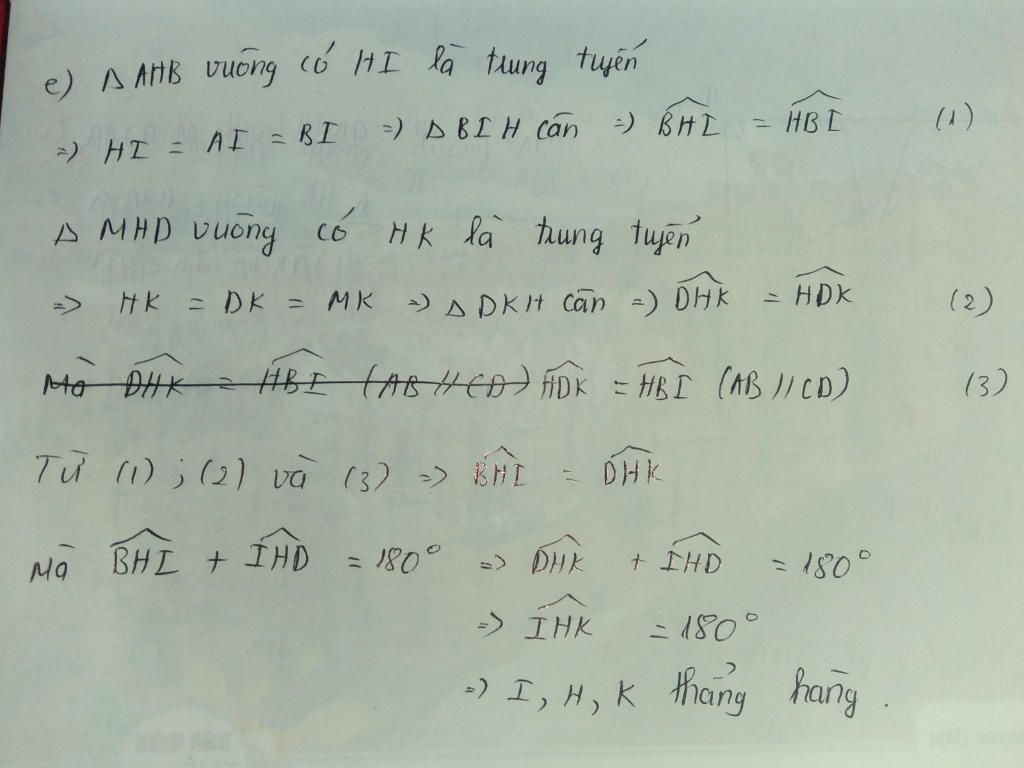 e) Δ AHB vuông có HI là trung tuyến
=> HI = AI = BI => Δ BIH cân => \widehat{BHI} = \widehat{HBI} (1)
Δ MHD vuông có HK là trung tuyến
=> HK = DK = MK => Δ DKH cân => \widehat{DHK} = \widehat{HDK} (2)
Mà \widehat{DHK} = \widehat{HBI} (AB // CD) \widehat{HDK} = \widehat{HBI} (AB // CD) (3)
Từ (1) ; (2) và (3) => \widehat{BHI} = \widehat{DHK}
Mà \widehat{BHI} + \widehat{IHD} = 180° => \widehat{DHK} + \widehat{IHD} = 180°
=> \widehat{IHK} = 180°
=> I, H, K thẳng hàng.